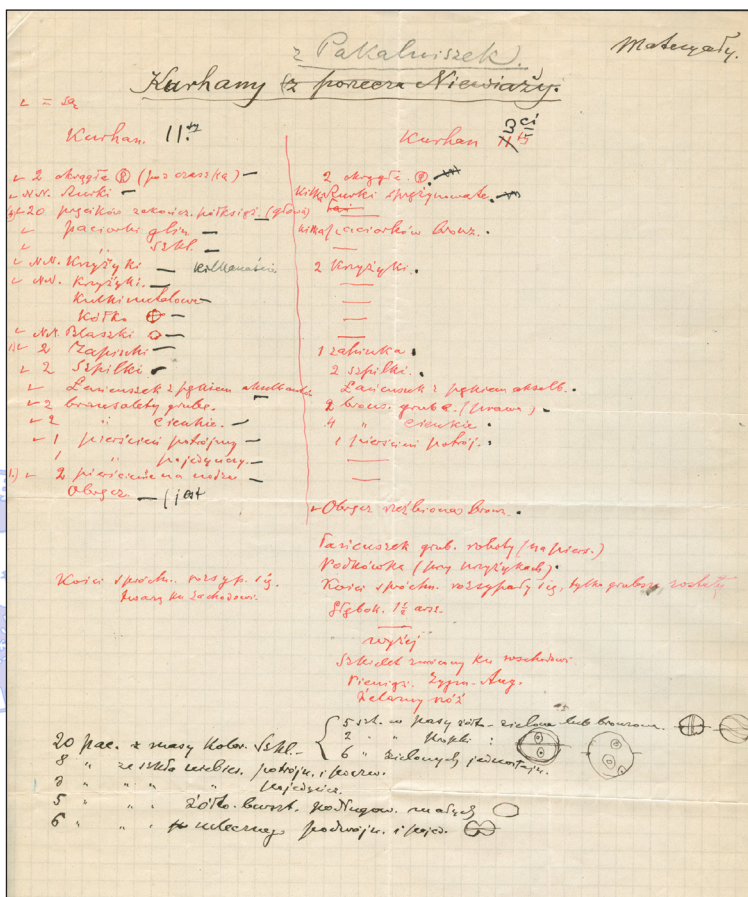 Materyały.
z Pakalniszek.
Kurhany (z porzecza Niewiaży.
✓ = są
Kurhan. 11ty
2 okrągłe (pod czaszką) —
N.N. Rurki —
20 pręcików zakończ. półksięż. (głowa)
paciorki glin. —
" szkl. —
N.N. Krzyżyki — kilkanaście
N.N. Krzyżyki. —
Kulki metalowe —
Kółko —
N.N. Blaszki —
2 Zapinki —
2 Szpilki —
Łańcuszek z pękiem
2 bransolety grube.
2 " cienkie. —
1 pierścień potrójny —
1 " pojedyńczy. —
2 pierścienie na
Obręcz — (jest
Kości spróchn. rozsyp. się.
twarzą ku zachodowi.
Kurhan
2 okrągłe.
kilka Rurki sprężynowate.
kilka paciorków bronz.
2 Krzyżyki.
1 zapinka
2 szpilki.
Łańcuszek z pękiem
2 brans. grube. (prawa)
4 " cienkie
1 pierścień potrój.
Obręcz rzeźbiona bronz.
Łańcuszek grub. roboty (na piers.)
Podkówka (przy krzyżykach)
Kości spróchn. rozsypały się, tylko grubsze zostały
Głębok. 1½ arsz.
wyżej
Szkielet zwrócony ku wschodowi.
Pieniądz. Zygm. Aug.
Żelazny nóż
20 pac. z masy kolor. szkl. —
5 szt. w pasy żółto-zielone lub bronzow.
2 " " kropki :
6 " zielonych jednostajn.
8 " ze szkła niebies. potrójn. i poczw.
3 " " " pojedyńcz.
5 " " " żółto-burszt. podługow. małych
6 " " " mlecznego podwójn. i pojed.